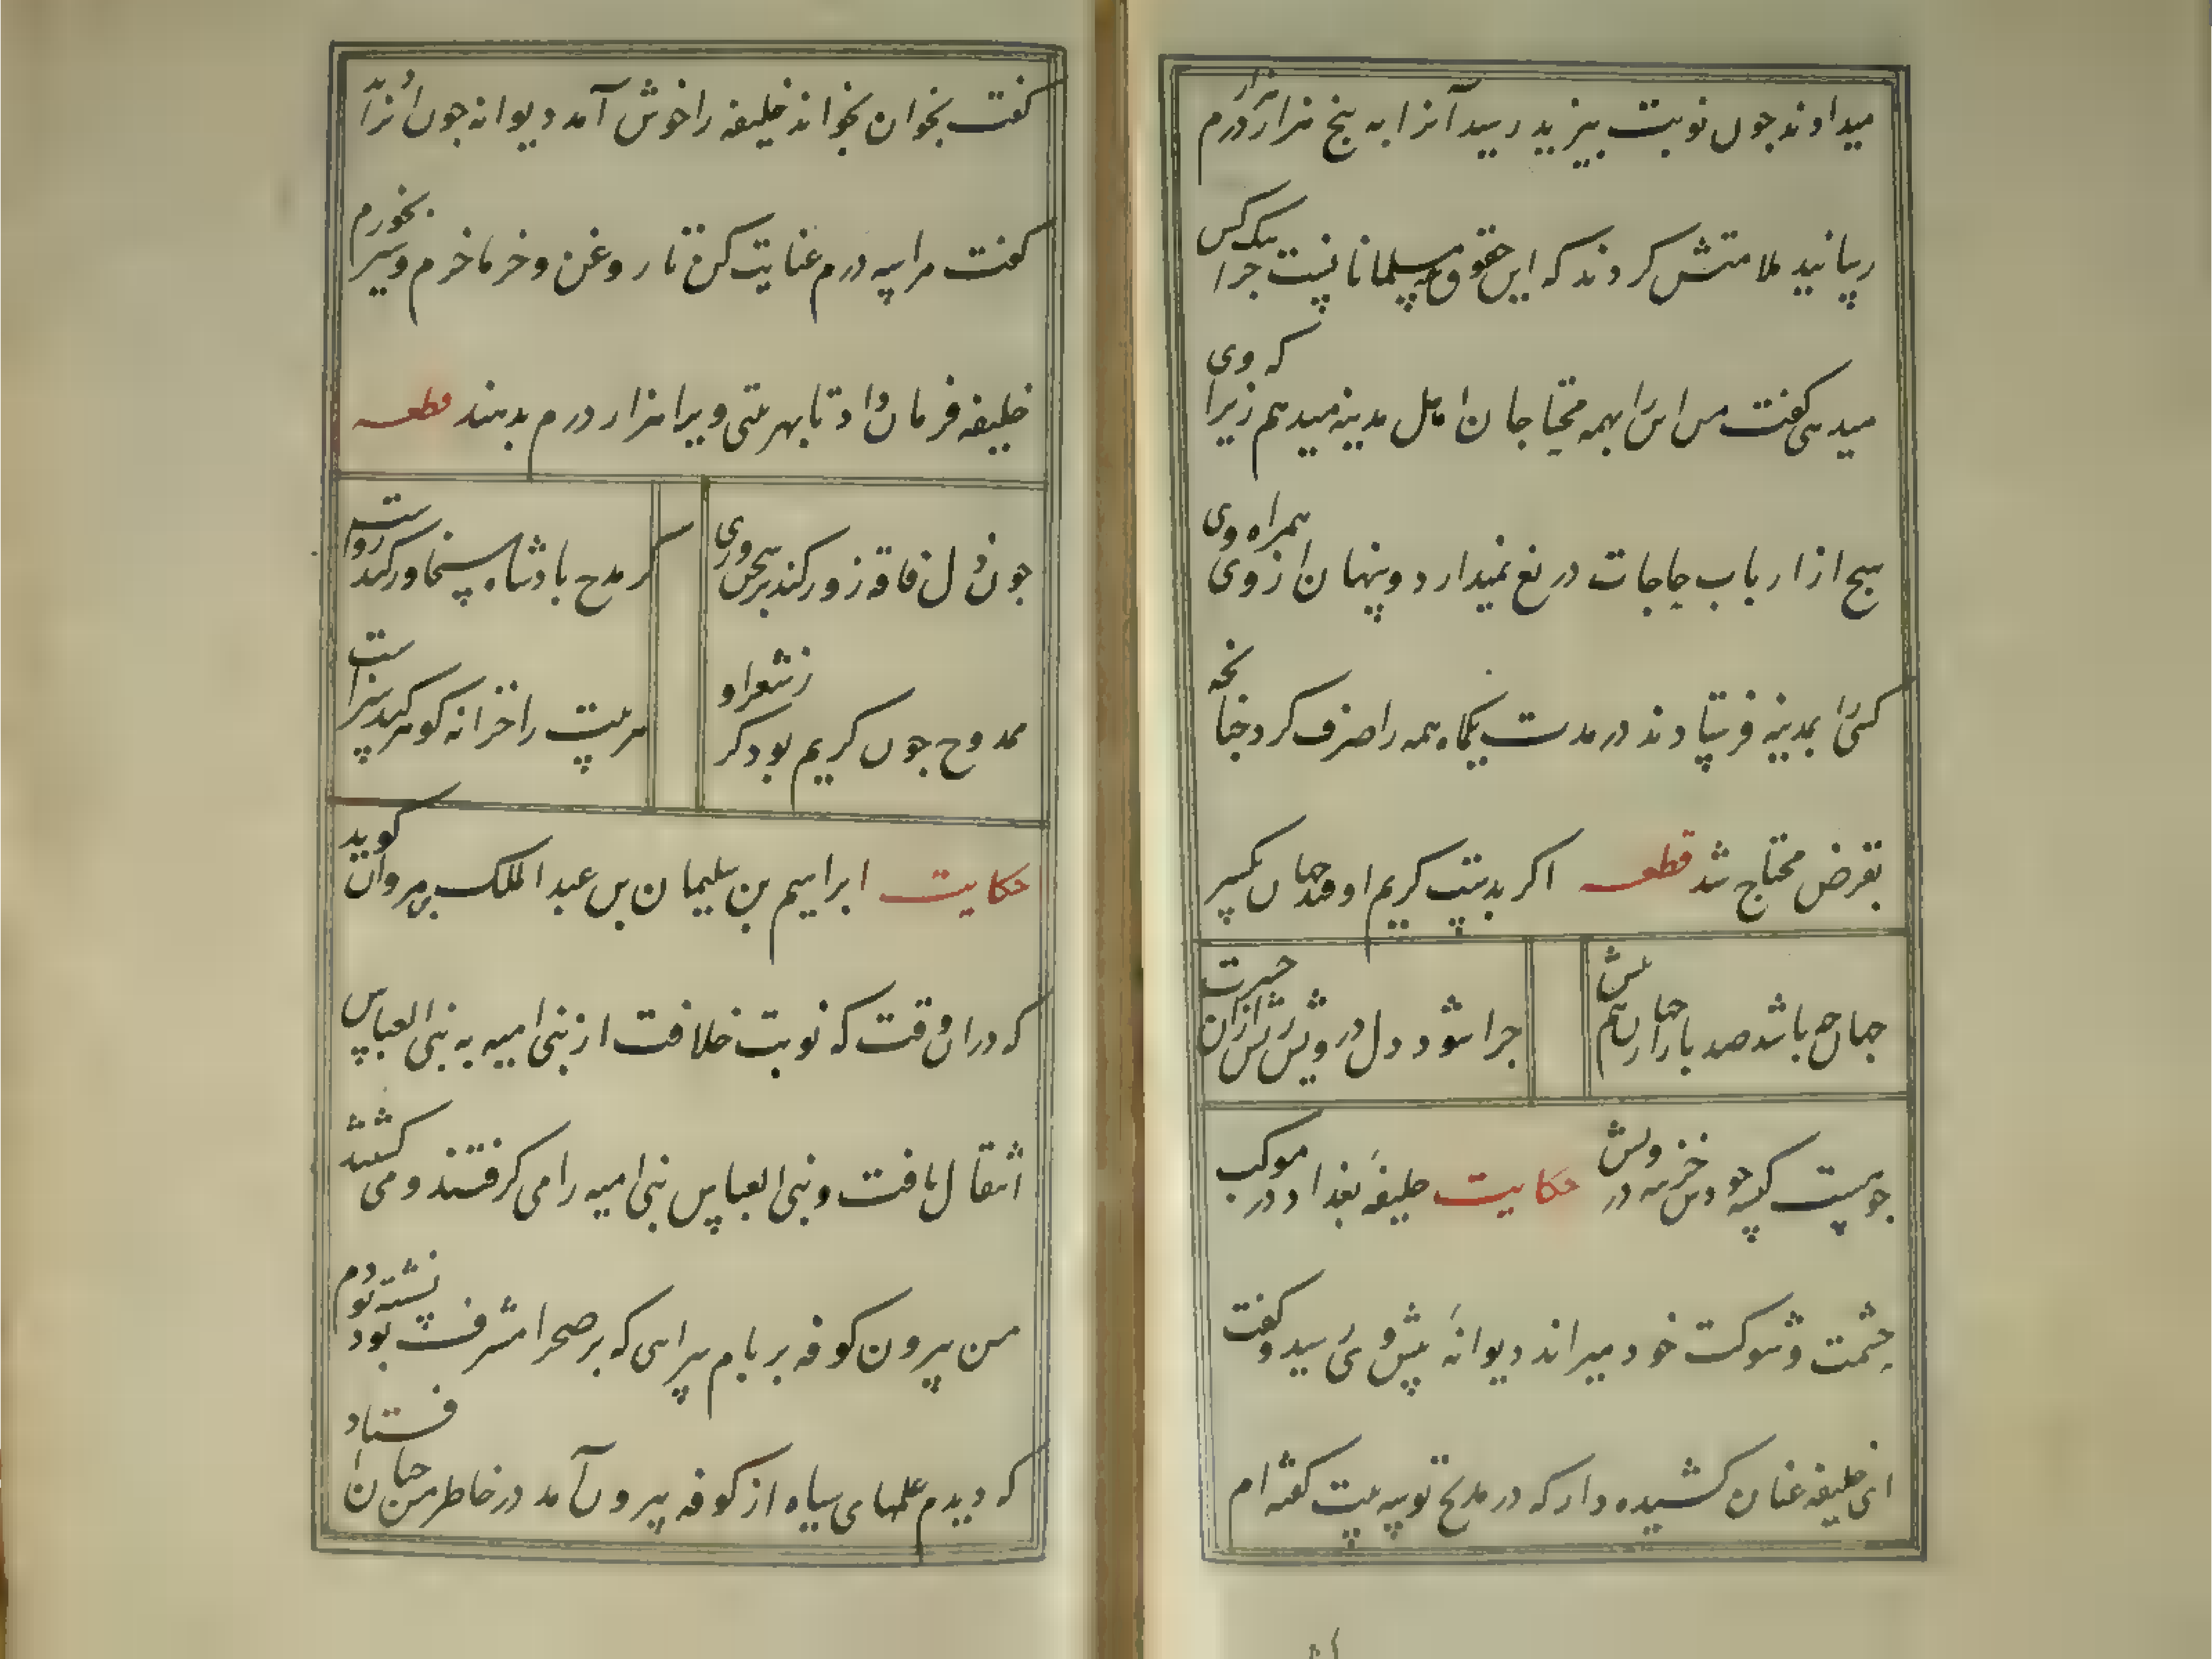 میداوند جون نوبت بیزید رسید آنرا به پنج هزار هزار درم
رسانید ملامتش کردند که این حقوق همه مسلمانانست جرا بیک کس
میدهی گفت من این را بهمه محتاجان اهل مدینه میدهم زیرا که وی
هیج از ارباب حاجات دریغ نمیدارد و پنهان از وی همراه وی
کسی را بمدینه فرستادند در مدت یکماه همه را صرف کرد جنانجه
بقرض محتاج شد قطعه اکر بدست کریم اوفتد جهان یکسر
جهان جه باشد صد بار ازان جهان هم بیش
جرا شود دل درویش ریش ازان حسرت
جو هست کیسه جودش خزینه درویش حکایت خلیفهٔ بغداد در موکب
حشمت و شوکت خود میراند دیوانهٔ پیش وی رسید و کفت
ای خلیفه عنان کشیده دار که در مدیح تو سه بیت کفته ام
کفت بخوان بخواند خلیفه را خوش آمد دیوانه جون آنرا
کفت مرا سه درم عنایت کن تا روغن و خرما خرم و سیر بخورم
خلیفه فرمان داد تا بهر بیتی ویرا هزار درم بدهند قطعه
جون ذل فاقه زور کند بر سخنوری
کر مدح بادشاه سخاور کند رواست
ممدوح جون کریم بود کر ز شعر او
هر بیت را خزانه کوهر کند سزاست
حکایت ابراهیم بن سلیمان بن عبد الملک بن مروان کوید
که دران وقت که نوبت خلافت از بنی امیه به بنی العباس
انتقال یافت و بنی العباس بنی امیه را می کرفتند و می کشتند
من بیرون کوفه بر بام سرایی که بر صحرا مشرف بود نشسته بودم
که دیدم علمهای سیاه از کوفه بیرون آمد در خاطر من جنان افتاد